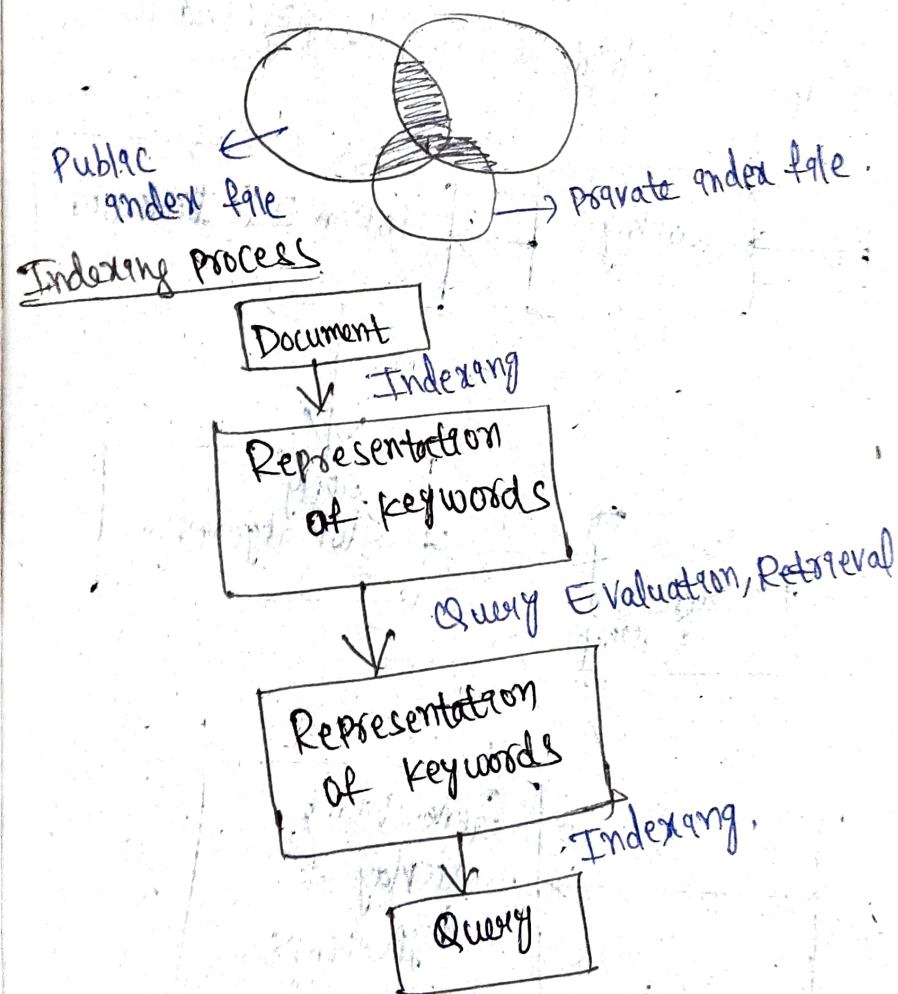 Public
index file
Private index file.
Indexing process
Document
Indexing
Representation
of keywords
Query Evaluation, Retrieval
Representation
of keywords
Indexing.
Query